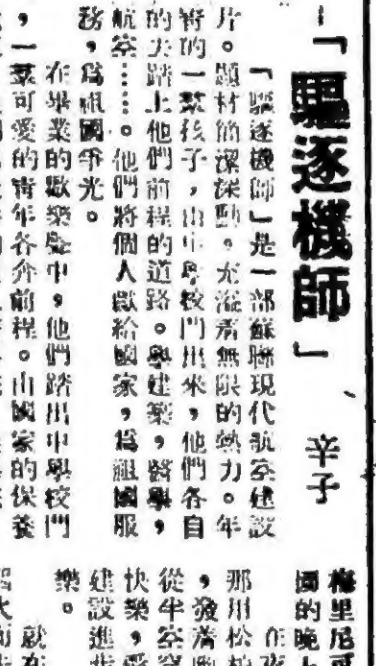 「驅逐機師」、 辛子
「驅逐機師」是一部蘇聯現代航空建設
片。題材簡潔深動。充溢着無限的熱力。年
青的一羣孩子,由中學校門出來,他們各自
的去踏上他們前程的道路。學建築,醫學,
航空……。他們將個人獻給國家,爲祖國服
務,爲祖國爭光。
在畢業的歡樂聲中,他們踏出中學校門
,一羣可愛的青年各奔前程。由國家的保養
梅里尼可
國的晚
在夜
那用松柏
,發清
從半空
快樂,
建設進步
樂。
就在